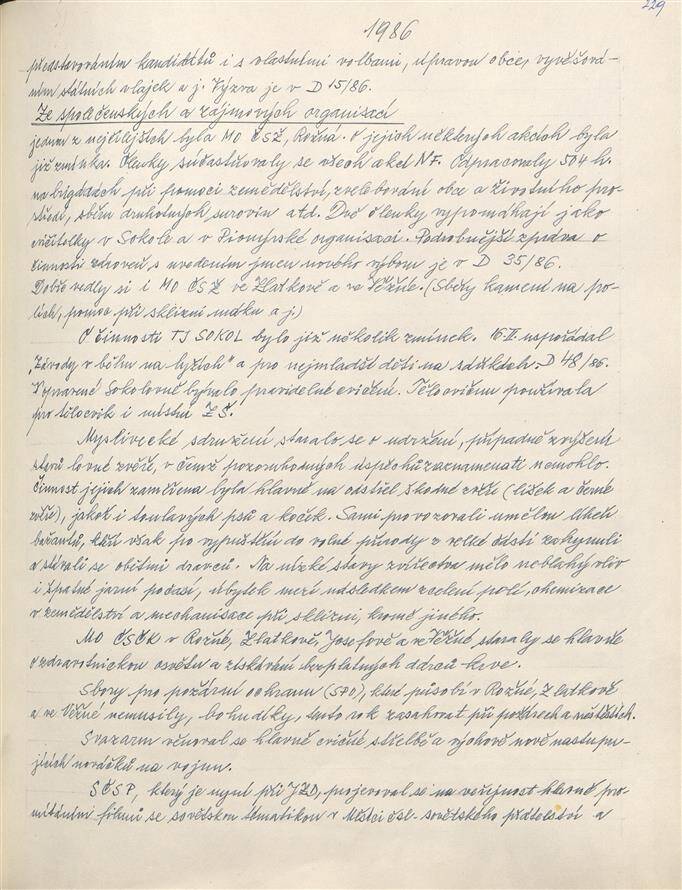 229
1986
představováním kandidátů i s vlastními volbami, úpravou obce, vyvěšová-
ním státních vlajek a j. Výzva je v D 15/86.
Ze společenských a zájmových organisací
jednou z nejbližších byla MO ČSŽ, Rožná. O jejich některých akcích byla
již zmínka. Členky súčastňovaly se všech akcí NF. Odpracovaly 504 h.
na brigádách při pomoci zemědělství, zvelebování obce a životního pro-
středí, sběru druhotných surovin atd. Dvě členky vypomáhají jako
cvičitelky v Sokole a v Pionýrské organisaci. Podrobnější zpráva o
činnosti zároveň s uvedením jmen nového výboru je v D 35/86.
Dobře vedly si i MO ČSŽ ve Zlatkově a ve Věžné. (Sběry kamení na po-
lích, pomoc při sklizni máku a j.)
O činnosti TJ SOKOL bylo již několik zmínek. 16.II. uspořádal
„Závody v běhu na lyžích" a pro nejmladší děti na sáňkách. D 48/86.
V upravené Sokolovně bývalo pravidelné cvičení. Tělocvičnu používala
pro tělocvik i místní ZŠ.
Myslivecké sdružení staralo se o udržení, případně zvýšení
stavů lovné zvěře, v čemž pozoruhodných úspěchů zaznamenati nemohlo.
Činnost jejich zaměřena byla hlavně na odstřel škodné zvěře (lišek a černé
zvěře), jakož i toulavých psů a koček. Sami provozovali umělou líheň
bažantů, kteří však po vypuštění do volné přírody z velké části zahynuli
a stávali se obětmi dravců. Na nízké stavy zvířectva mělo neblahý vliv
i špatné jarní počasí, úbytek mezí následkem scelení polí, chemizace
v zemědělství a mechanisace při sklizni, kromě jiného.
MO ČSČK v Rožné, Zlatkově, Josefově a ve Věžné staraly se hlavně
o zdravotnickou osvětu a získávání bezplatných dárců krve.
Sbory pro požární ochranu (SPO), které působí v Rožné, Zlatkově
a ve Věžné nemusily, bohudíky, tento rok zasahovat při požárech a neštěstích.
Svazarm věnoval se hlavně cvičné střelbě a výchově nově nastupu-
jících nováčků na vojnu.
SČSP, který je nyní při JZD, projevoval se na veřejnost hlavně pro-
mítáním filmů se sovětskou tématikou v Měsíci čsl.-sovětského přátelství a